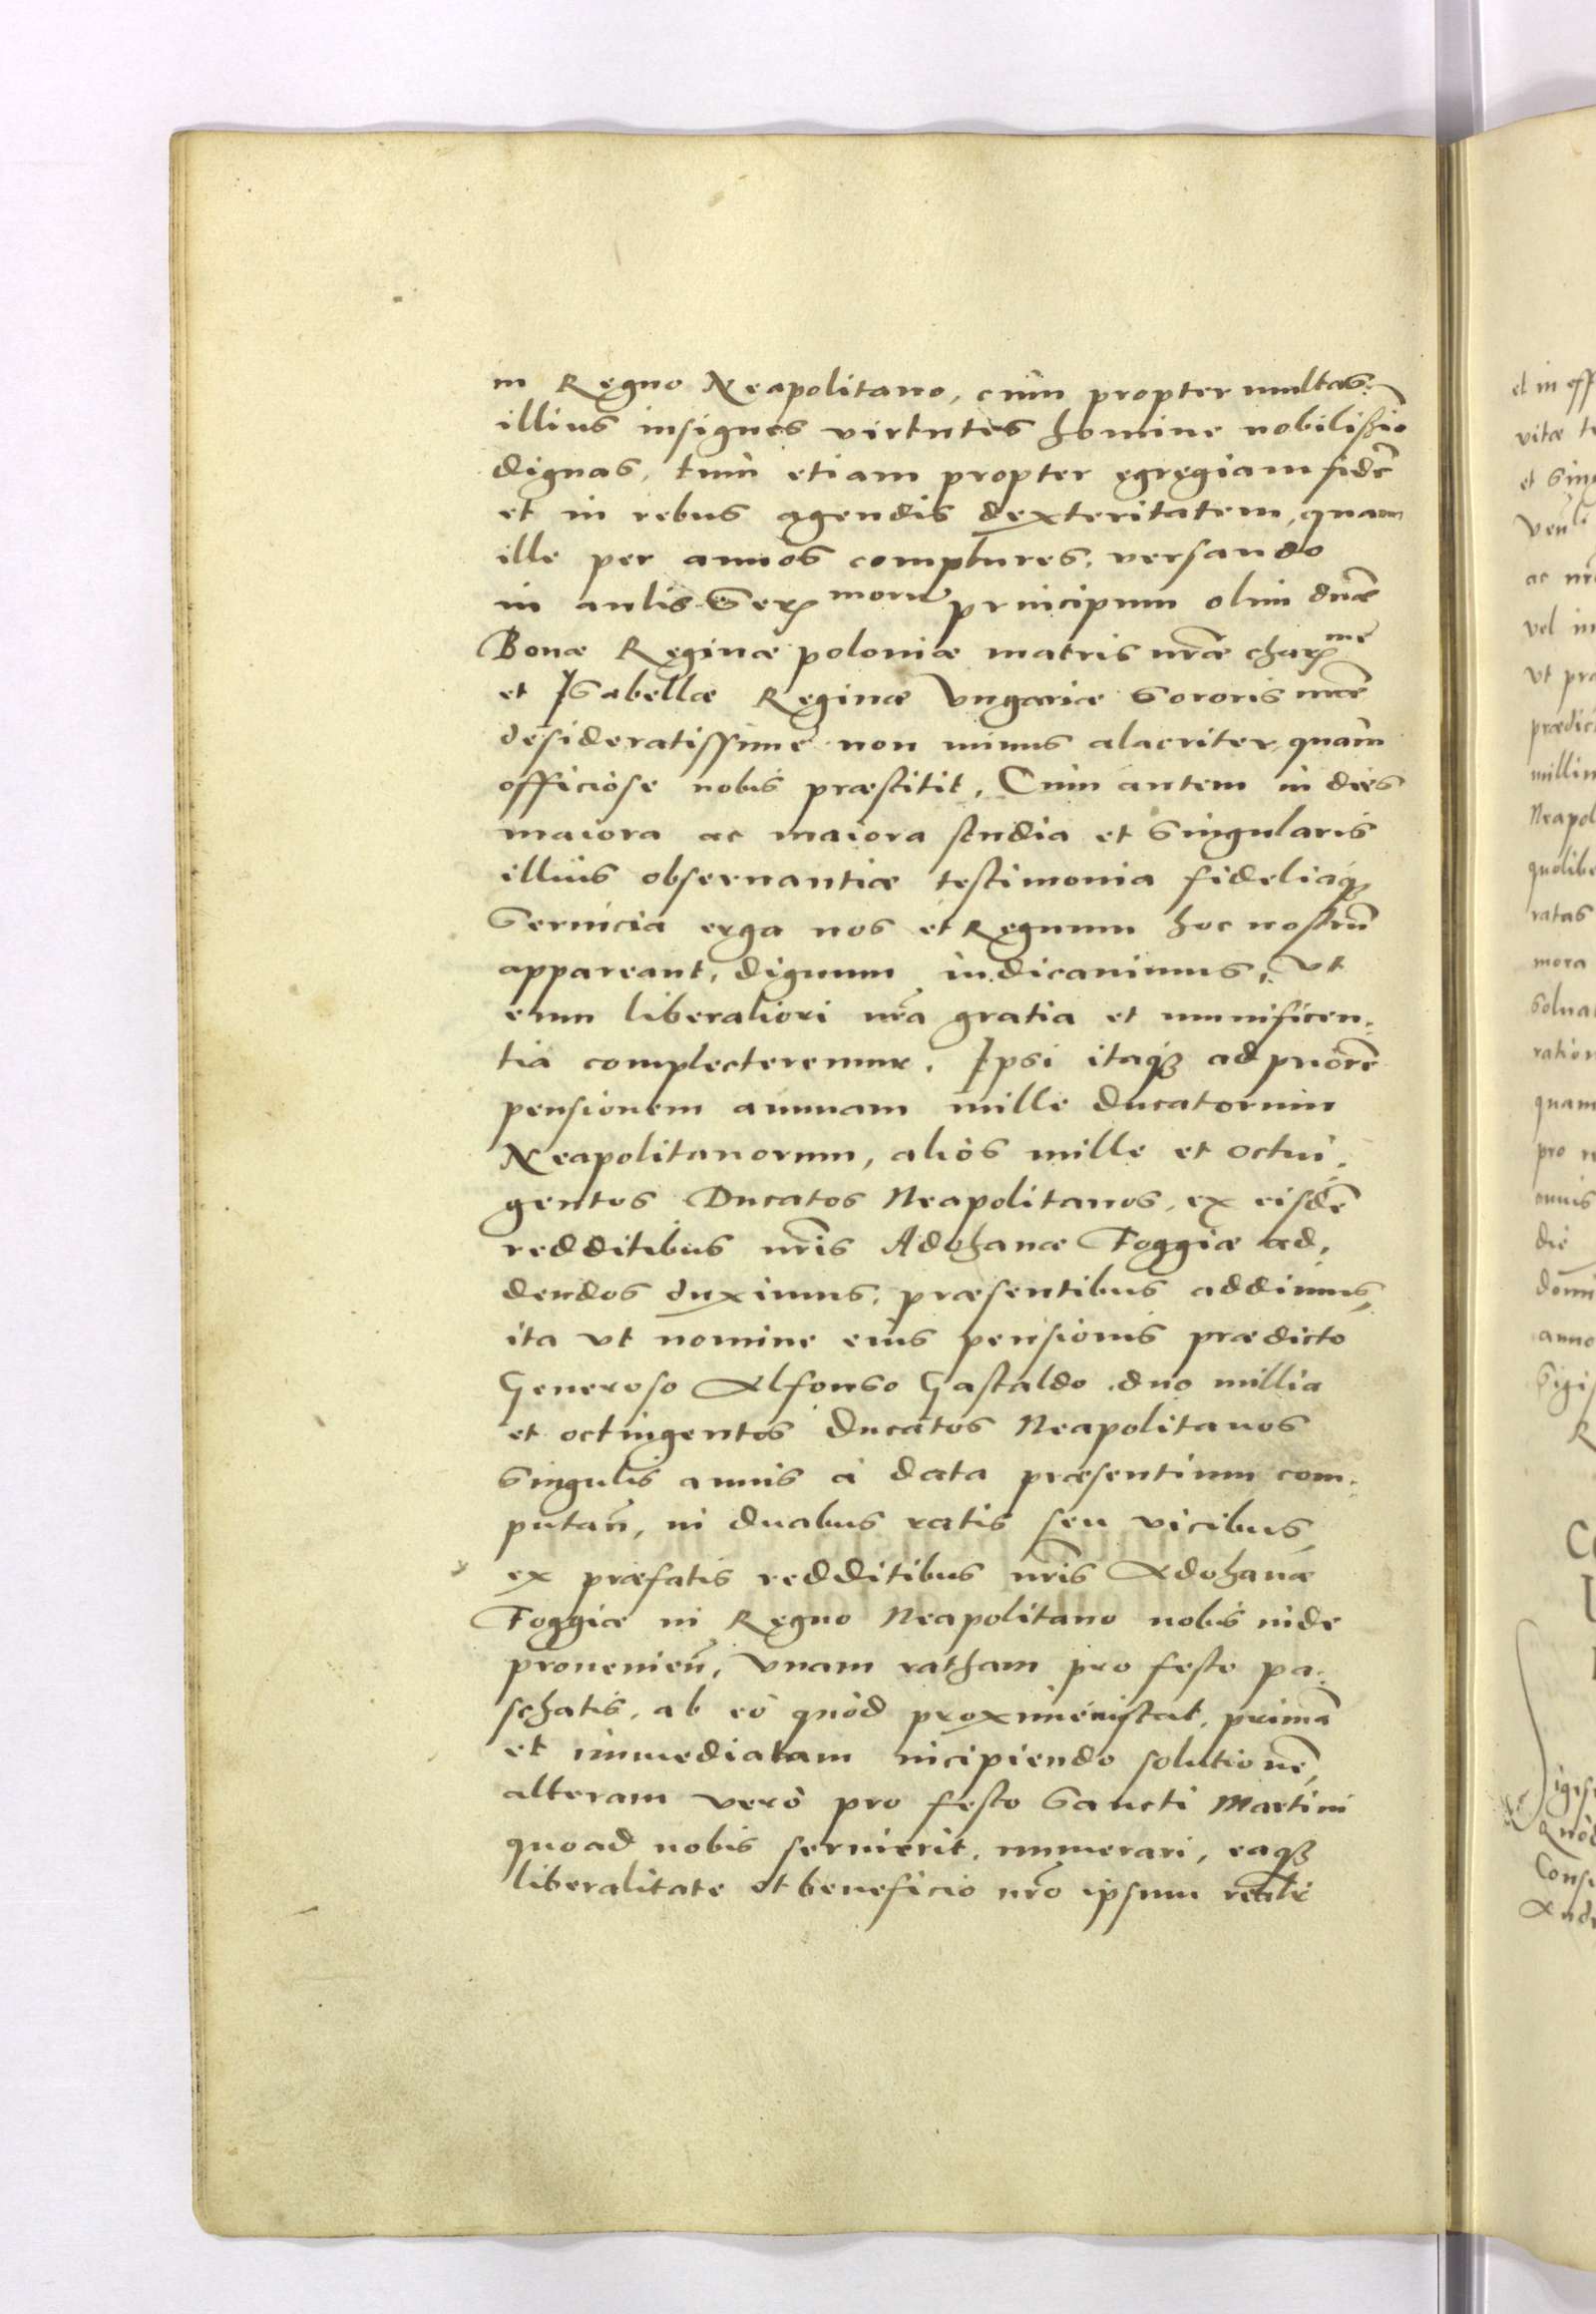 in Regno Neapolitano, cùm propter multas
illius insignes virtutes homine nobilissĩo
dignas, tùm etiam propter egregiam fidẽ
et in rebus agendis dexteritatem, quam
ille per annos complures, versando
in aulis Ser^morũ principum olim dnæ
Bonæ Reginæ poloniæ matris nr̃æ char^mę
et Isabellæ Reginæ Vngariæ sororis nr̃æ
desideratissimę non minus alacriter, quàm
officiòse nobis præstitit, Cùm autem in dies
maiora ac maiora studia et singularis
illius obseruantiæ testimonia fideliaq;
seruicia erga nos et Regnum hoc nostrũ
appareant, dignum iudicauimus, vt
eum liberaliori nr̃a gratia et munificen-
tia complecteremur. Ipsi itaq; ad priorẽ
pensionem annuam mille ducatorum
Neapolitanorum, aliòs mille et octin-
gentos Ducatos Neapolitanos, ex eisdẽ
redditibus nr̃is Adohanæ Foggiæ ad-
dendos duximus, præsentibus addimus,
ita vt nomine eius pensionis prædicto
Generoso Alfonso Gastaldo duo millia
et octingentos ducatos Neapolitanos
singulis annis à data præsentium com-
putañ, in duabus ratis seu vicibus,
ex præfatis redditibus nr̃is Adohanæ
Foggiæ in Regno Neapolitano nobis inde
prouenieñ, vnam ratham pro festo pa-
schatis, ab eò quòd proximè instat, primã
et immediatam incipiendo solutionẽ,
alteram verò pro festo Sancti Martini
quoad nobis seruierit, numerari, eaq;
liberalitate et beneficio nr̃o ipsum realr̃
et in eff
vitæ te
vel in
vt pra
prædic
millin
Neapol
quolibe
ratas
mora
solua
ration
quam
pro re
omnis
die
domin
anno
Sigis
R
Quòd
Consi